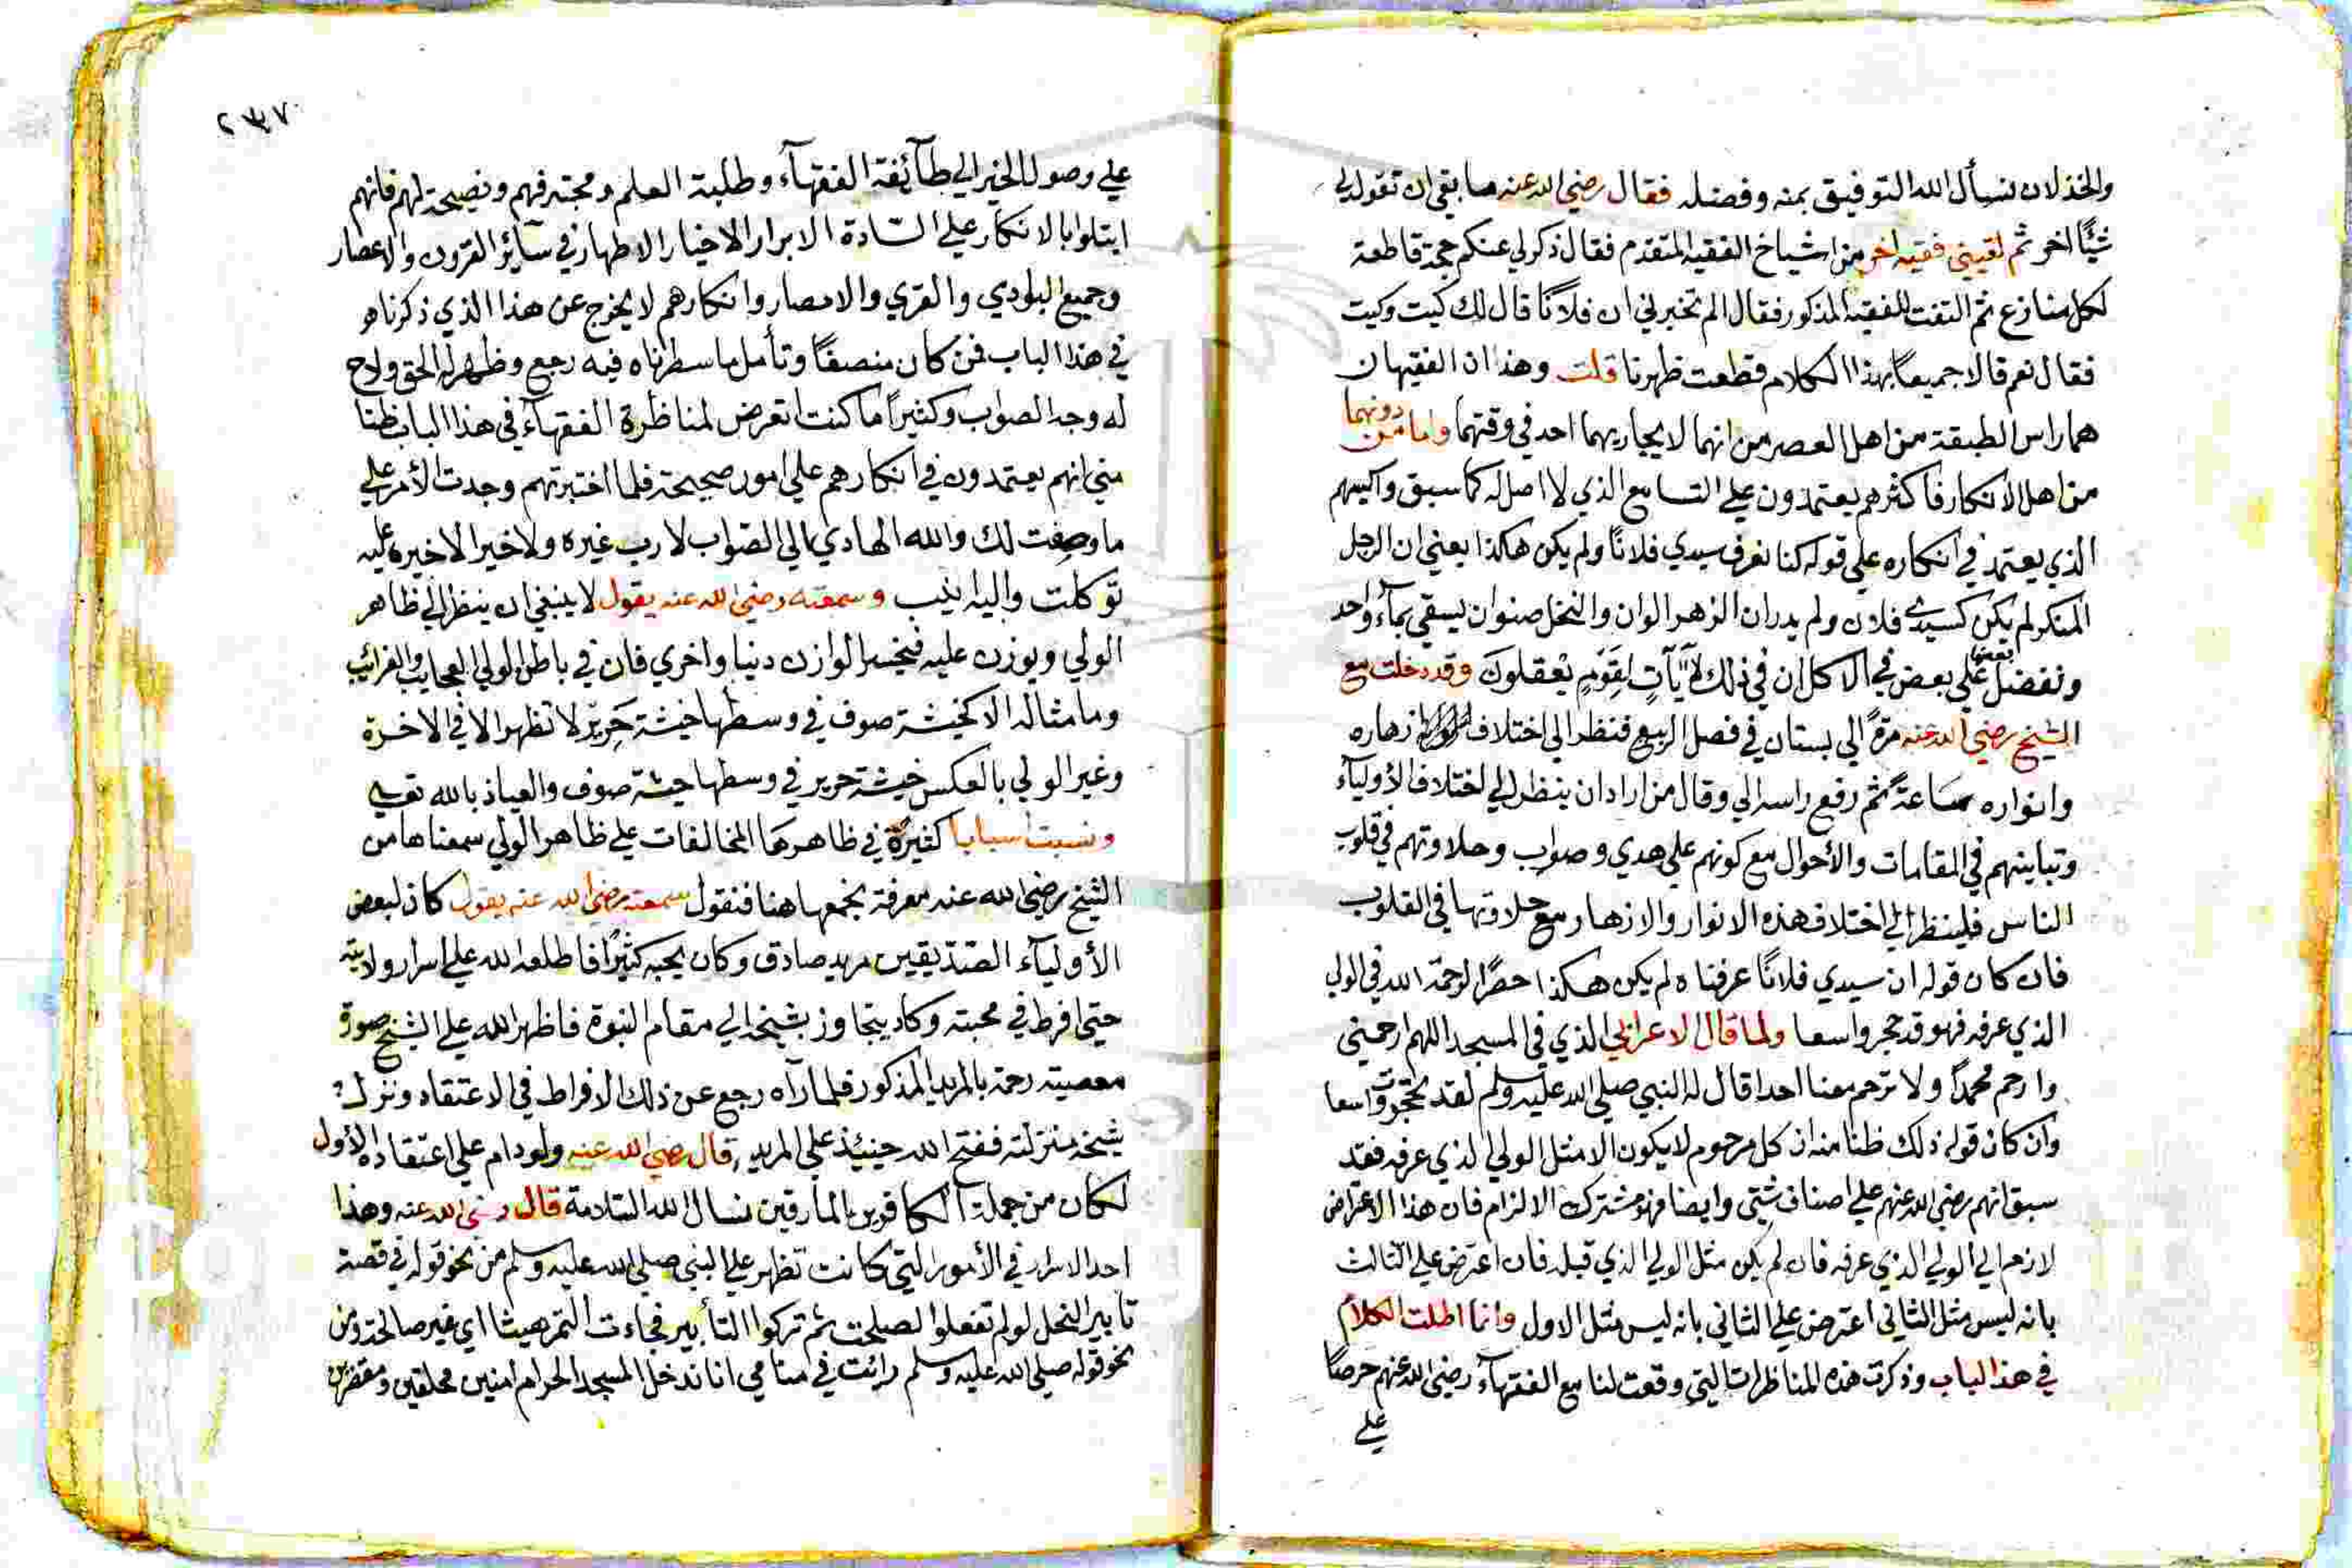 والخذلان نسأل الله التوفيق بمنه وفضله فقال رضي الله عنه ما بقي ان تقول لي
شئًا اخر ثم لقيني فقيه اخر من اشياخ الفقيه المتقدم فقال ذكر لي عنكم حجة قاطعة
لكل منازع ثم التفت للفقيه المذكور فقال الم تخبرني ان فلانًا قال لك كيت وكيت
فقال نعم قالا جميعًا بهذا الكلام قطعت ظهرنا قلت وهذان الفقيهان
هما راس الطبقة من اهل العصر من انهما لا يجاريهما احد في وقتهما واما من دونهما
من اهل الانكار فاكثرهم يعتمدون علي التسامع الذي لا اصل له كما سبق واكيسهم
الذي يعتمد في انكاره علي قوله كنا نعرف سيدي فلانًا ولم يكن هاكذا يعني ان الرجل
المنكر لم يكن كسيدي فلان ولم يدر ان الزهر الوان والنخل صنوان يسقي بمآء واحد
ونفضل بعضها علي بعض في الاكل ان في ذلك لآيات لقوم يعقلون وقد دخلت مع
الشيخ رضي الله عنه مرة الي بستان في فصل الربيع فنظر الي اختلاف ازهاره
وانواره ساعة ثم رفع راسه الي وقال من اراد ان ينظر الي اختلاف الأوليآء
وتباينهم في المقامات والأحوال مع كونهم علي هدي وصواب وحلاوتهم في قلوب
الناس فلينظر الي اختلاف هذه الانوار والازهار مع حلاوتها في القلوب
فان كان قوله ان سيدي فلانًا عرفناه لم يكن هكذا حصرًا لرحمة الله في الولي
الذي عرفه فهو قد حجر واسعا ولما قال الاعرابي الذي في المسجد اللهم ارحمني
وارحم محمدًا ولا ترحم معنا احدا قال له النبي صلي الله عليه وسلم لقد تحجرت واسعا
وان كان قوله ذلك ظنا منه ان كل مرحوم لا يكون الا مثل الولي الذي عرفه فقد
سبق انهم رضي الله عنهم علي اصناف شتي وايضا فهو مشترك الالزام فان هذا الاعتراض
لازم الي الولي الذي عرفه فان لم يكن مثل الولي الذي قبله فان اعترض علي الثالث
بانه ليس مثل الثاني اعترض علي الثاني بانه ليس مثل الاول وانما اطلت الكلام
في هذا الباب وذكرت هذه المناظرات التي وقعت لنا مع الفقهآء رضي الله عنهم حرصًا
علي
٢٣٧
علي وصول الخير الي طآئفة الفقهآء وطلبة العلم ومحبة فيهم ونصيحة لهم فانهم
ابتلوا بالانكار علي السادة الابرار الاخيار الاطهار في سآئر القرون والاعصار
وجميع البوادي والقري والامصار وانكارهم لا يخرج عن هذا الذي ذكرناه
في هذا الباب فمن كان منصفًا وتأمل ما سطرناه فيه رجع وظهر له الحق ولاح
له وجه الصواب وكثيرًا ما كنت اتعرض لمناظرة الفقهآء في هذا الباب ظنا
مني انهم يعتمدون في انكارهم علي امور صحيحة فلما اختبرتهم وجدت الأمر علي
ما وصفت لك والله الهادي الي الصواب لا رب غيره ولا خير الا خيره عليه
توكلت واليه انيب وسمعته رضي الله عنه يقول لا ينبغي ان ينظر الي ظاهر
الولي ويوزن عليه فيخسر الوازن دنيا واخري فان في باطن الولي العجايب والغرائب
وما مثاله الا كخيشة صوف في وسطها خيشة حرير لا تظهر الا في الاخرة
وغير الولي بالعكس خيشة حرير في وسطها خيشة صوف والعياذ بالله تعالي
ونسبت اسبابا كثيرة في ظاهرها المخالفات علي ظاهر الولي سمعناها من
الشيخ رضي الله عنه مفرقة نجمعها هنا فنقول سمعته رضي الله عنه يقول كان لبعض
الأوليآء الصديقين مريد صادق وكان يحبه كثيرًا فاطلعه الله علي اسرار ولايته
حتي افرط في محبته وكاد يتجاوز بشيخه الي مقام النبوة فاظهر الله علي الشيخ صورة
معصيته رحمة بالمريد المذكور فلما رآه رجع عن ذلك الافراط في الاعتقاد ونزل
شيخه منزلته ففتح الله حينئذ علي المريد قال رضي الله عنه ولو دام علي اعتقاده الأول
لكان من جملة الكافرين المارقين نسال الله السلامة قال رضي الله عنه وهذا
احد الاسرار في الأمور التي كانت تظهر علي النبي صلي الله عليه وسلم من نحو قوله في قصة
تابير النخل لو لم تفعلوا لصلحت ثم تركوا التأبير فجاءت التمر شيصا اي غير صالحة ومن
نحو قوله صلي الله عليه وسلم رائت في منامي انا ندخل المسجد الحرام امنين محلقين ومقصرين